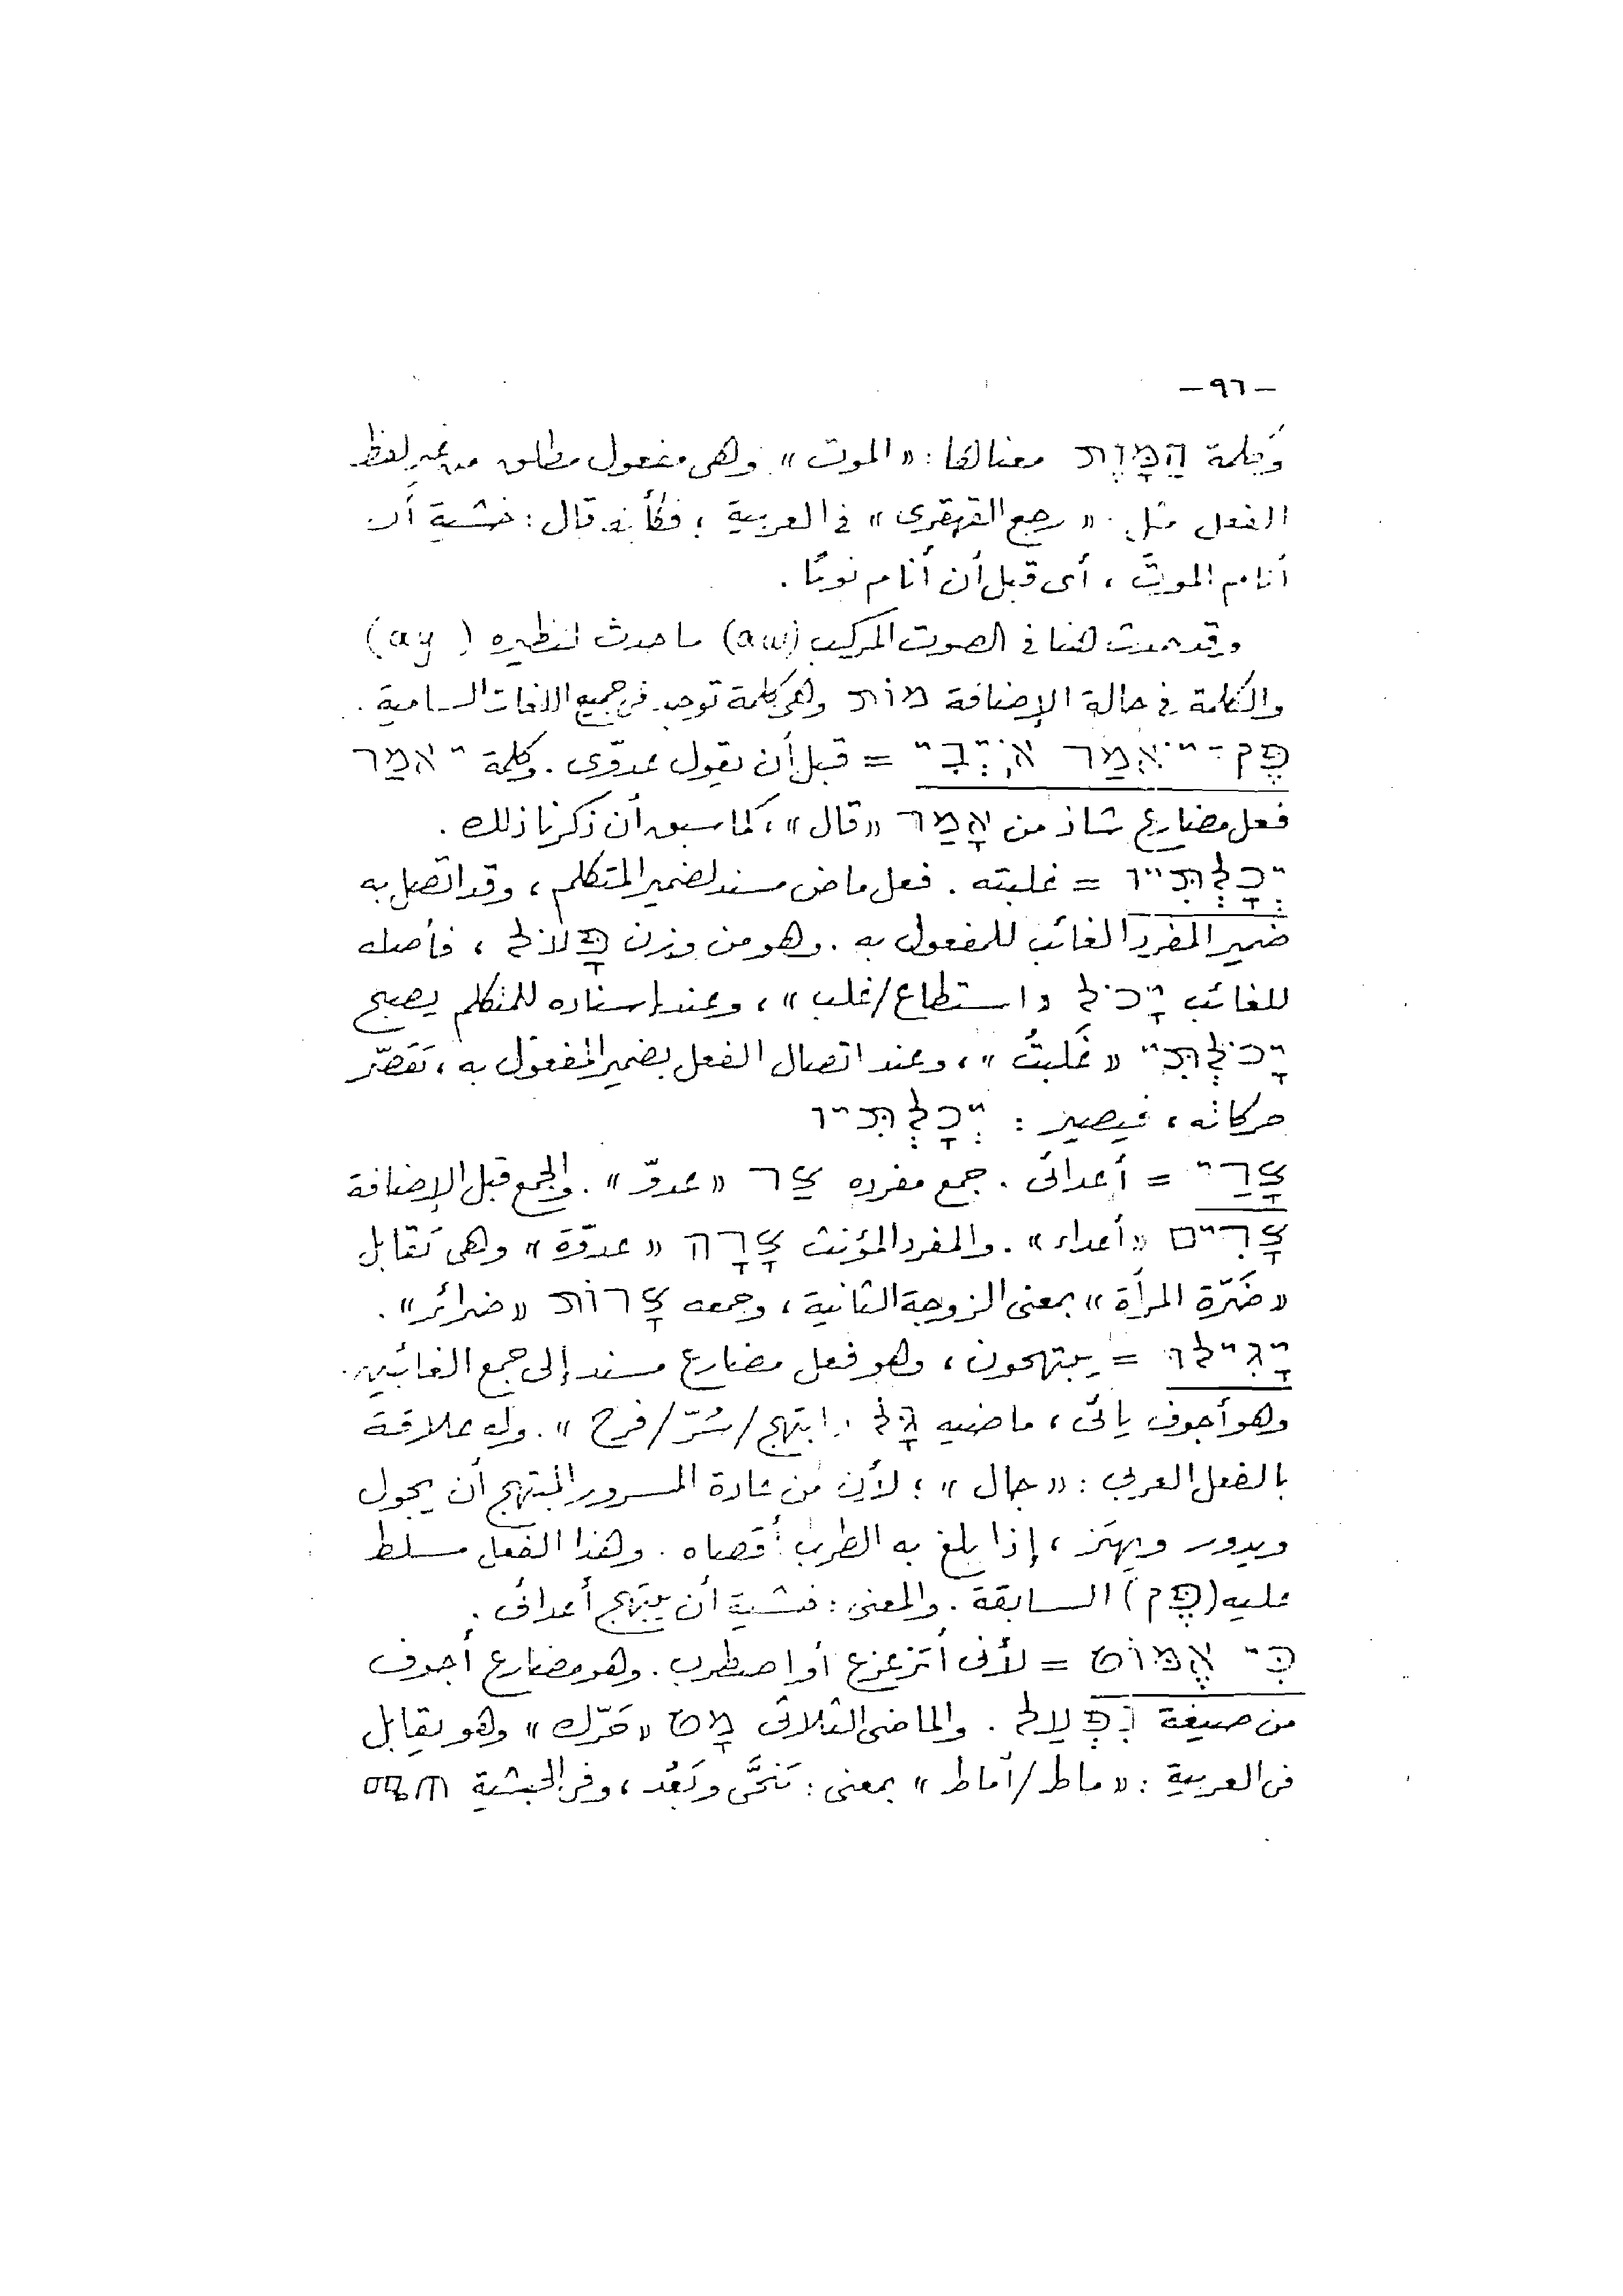 -٩٦-
وكلمة הַמָּוֶת معناها: «الموت» وهى مفعول مطلق من غير لفظ
الفعل مثل: «رجع القهقرى» فى العربية ؛ فكأنه قال: خشية أن
أنام الموتَ ، أى قبل أن أنام نومًا .
وقد حدث هنا فى الصوت المركب (aw) ما حدث لنظيره (ay)
والكلمة فى حالة الإضافة מוֹת وهى كلمة توجد فى جميع اللغات السامية .
פֶּן־יֹאמַר אֹיְבִי = قبل أن يقول عدوّى . وكلمة יֹאמַר
فعل مضارع شاذ من אָמַר «قال» ، كما سبق أن ذكرنا ذلك .
יְכָלְתִּיו = غلبته . فعل ماض مسند لضمير المتكلم ، وقد اتصل به
ضمير المفرد الغائب للمفعول به . وهو من وزن פָּעֹל ، فأصله
للغائب יָכֹל «استطاع/غلب» ، وعند إسناده للمتكلم يصبح
יָכֹלְתִּי «غَلبتُ» ، وعند اتصال الفعل بضمير المفعول به ، تَقصّر
حركاته ، فيصير : יְכָלְתִּיו
צָרַי = أعدائى . جمع مفرده צַר «عدوّ» . والجمع قبل الإضافة
צָרִים «أعداء» . والمفرد المؤنث צָרָה «عدوّة» وهى تقابل
«ضَرّة المرأة» بمعنى الزوجة الثانية ، وجمعه צָרוֹת «ضرائر» .
יָגִילוּ = يبتهجون ، وهو فعل مضارع مسند إلى جمع الغائبين .
وهو أجوف يائى ، ماضيه גָּל «ابتهج/سُرّ/فرح» . وله علاقة
بالفعل العربى : «جال» ؛ لأن من عادة المسرور المبتهج أن يجول
ويدور ويهتز ، إذا بلغ به الطرب أقصاه . وهذا الفعل مسلط
عليه (פֶּן) السابقة . والمعنى : خشية أن يبتهج أعدائى .
כִּי אֶמּוֹט = لأنى أتزعزع أو اضطرب . وهو مضارع أجوف
من صيغة נִפְעַל . والماضى الثلاثى מָט «حَرّك» وهو يقابل
فى العربية : «ماط/أماط» بمعنى : تَنَحَّى وبَعُد ، وفى الحبشية